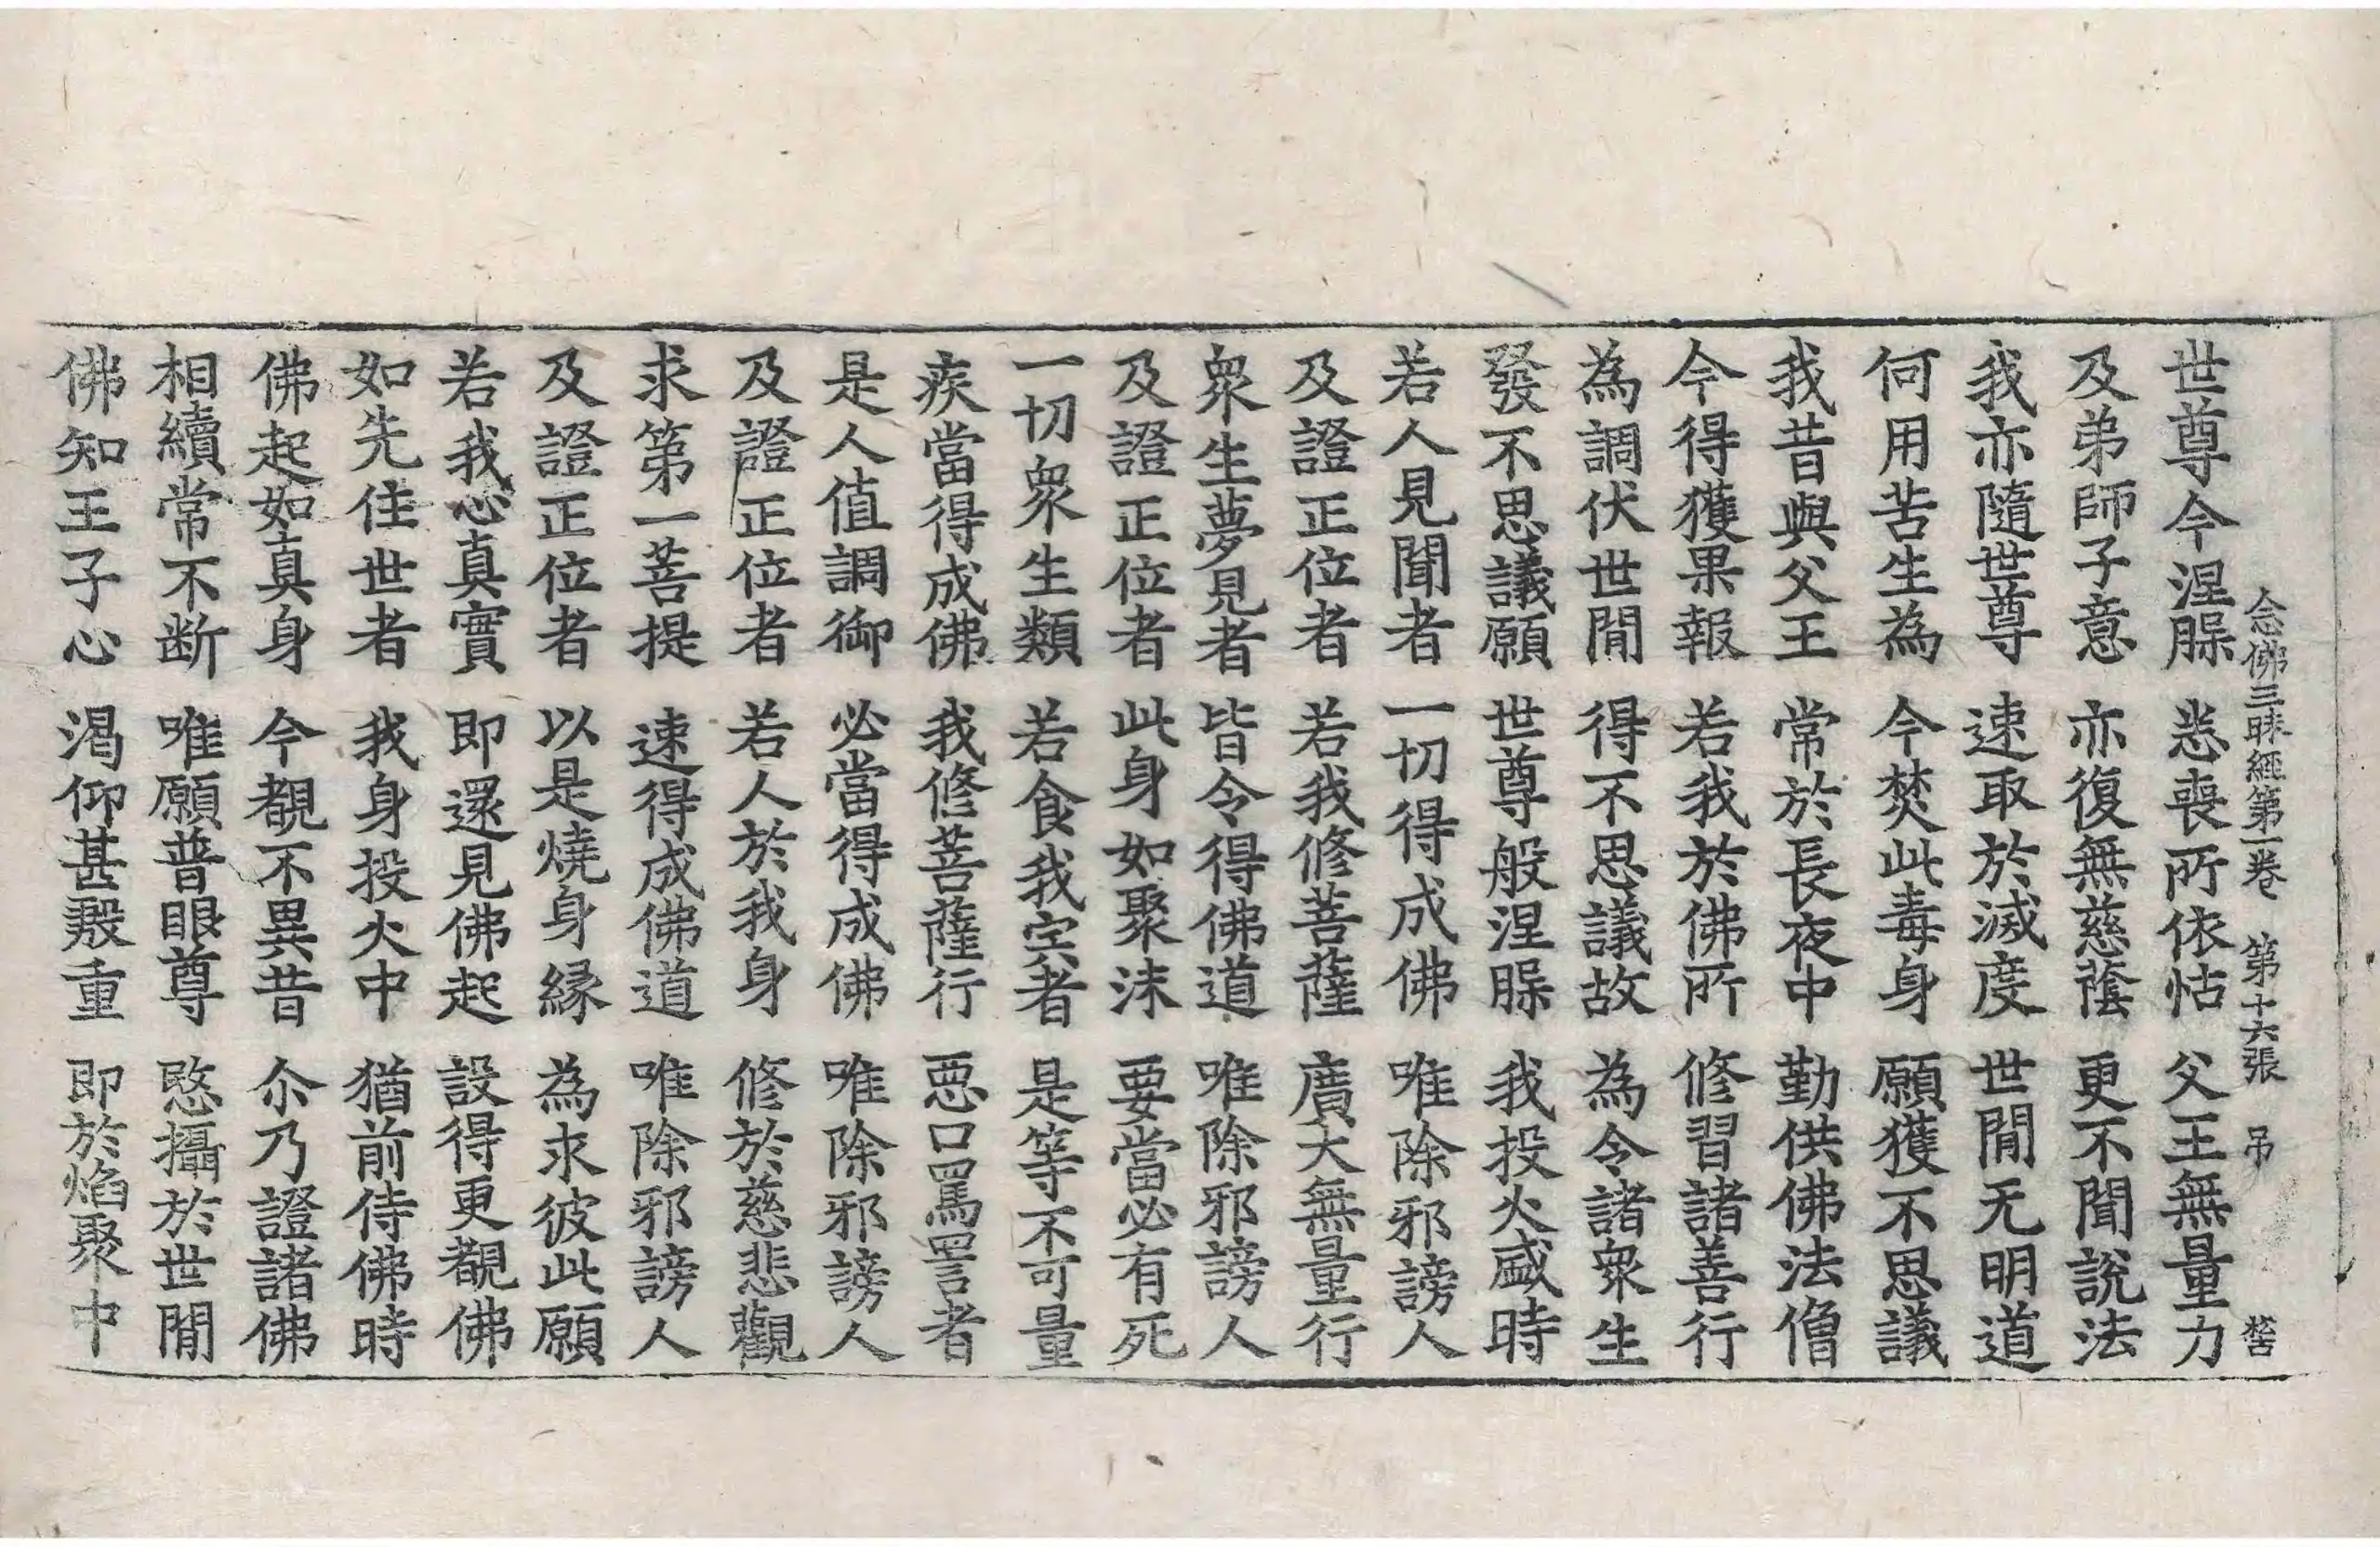 念佛三昧經第一卷　第十六張　弔
世尊今涅槃　悉喪所依怙　父王無量力
及弟師子意　亦復無慈蔭　更不聞說法
我亦隨世尊　速取於滅度　世間无明道
何用苦生為　今焚此毒身　願獲不思議
我昔與父王　常於長夜中　勤供佛法僧
今得獲果報　若我於佛所　修習諸善行
為調伏世間　得不思議故　為令諸衆生
發不思議願　世尊般涅槃　我投火盛時
若人見聞者　一切得成佛　唯除邪謗人
及證正位者　若我修菩薩　廣大無量行
衆生夢見者　皆令得佛道　唯除邪謗人
及證正位者　此身如聚沫　要當必有死
一切衆生類　若食我宍者　是等不可量
疾當得成佛　我修菩薩行　惡口罵詈者
是人值調御　必當得成佛　唯除邪謗人
及證正位者　若人於我身　修於慈悲觀
求第一菩提　速得成佛道　唯除邪謗人
及證正位者　以是燒身緣　為求彼此願
若我心真實　即還見佛起　設得更覩佛
如先住世者　我身投火中　猶前侍佛時
佛起如真身　今覩不異昔　尒乃證諸佛
相續常不断　唯願普眼尊　愍攝於世間
佛知王子心　渴仰甚殷重　即於焰聚中